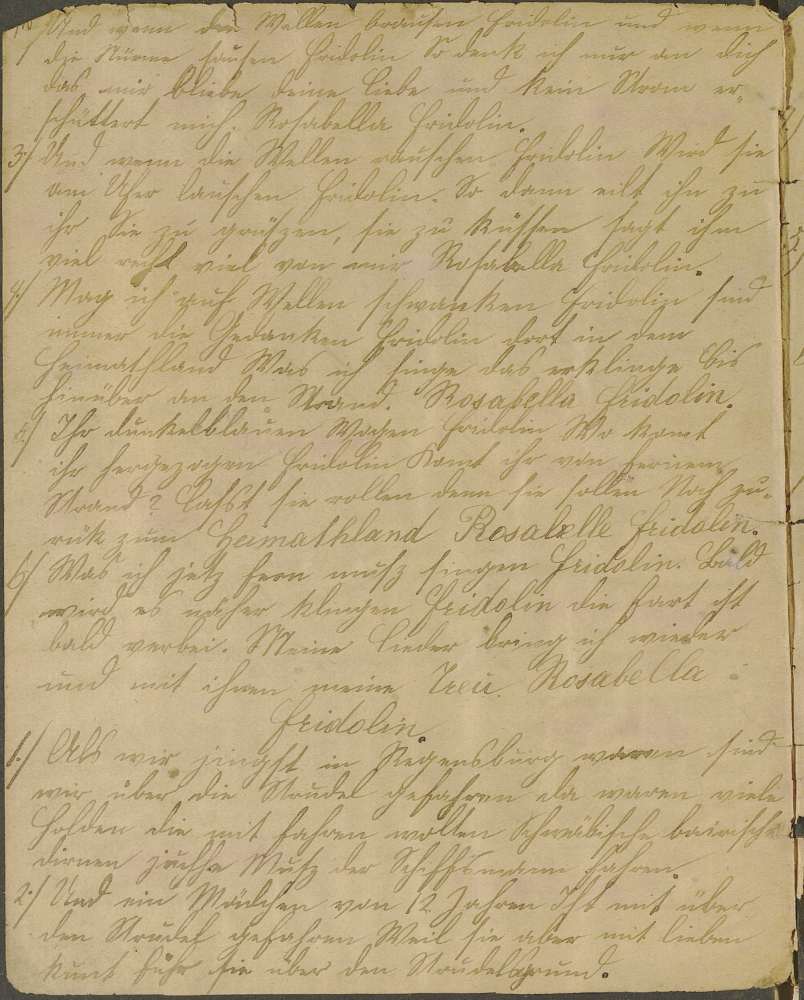 Und wenn die Wellen brausen Fridolin und wenn
die Stürme sausen Fridolin So denk ich nur an dich
das mir bliebe deine Liebe und kein Stram er„
schüttert mich. Rosabella Fridolin.
3./ Und wenn die Wellen rauschen Fridolin Wird sie
am Ufer lauschen Fridolin. So dann eilt ihr zu
ihr Sie zu grüszen, sie zu küssen sagt ihm
viel recht viel von mir Rosabella Fridolin.
4./ Mag ich auf Wellen schwanken Fridolin sind
immer die Gedanken Fridolin dort in dem
Heimathland Was ich singe das erklinge Bis
hinüber an den Strand. Rosabella Fridolin.
5./ Ihr dunkelblauen Wogen Fridolin Wo komt
ihr hergezogen Fridolin Komt ihr von fernem
Strand? Lasst sie rollen denn sie sollen Noch zu„
rük zum Heimathland Rosabelle Fridolin.
6./ Was ich jetz fern musz singen Fridolin. Bald
wird es näher klingen Fridolin die Fart ist
bald verbei. Meine Lieder bring ich wieder
und mit ihnen meine Treu. Rosabella
Fridolin.
1./ Als wir jingst in Regensburg waren sind
wir über die Strudel gefahren da waren viele
Holden die mit fahren wollten Schwäbische bairische
dirnen juchhe Musz der Schiffsmann fahren.
2./ Und ein Mädchen von 12 Jahren Ist mit über
den Strudel gefahren Weil sie aber nit lieben
kunt fuhr sie über den Strudelsgrund.